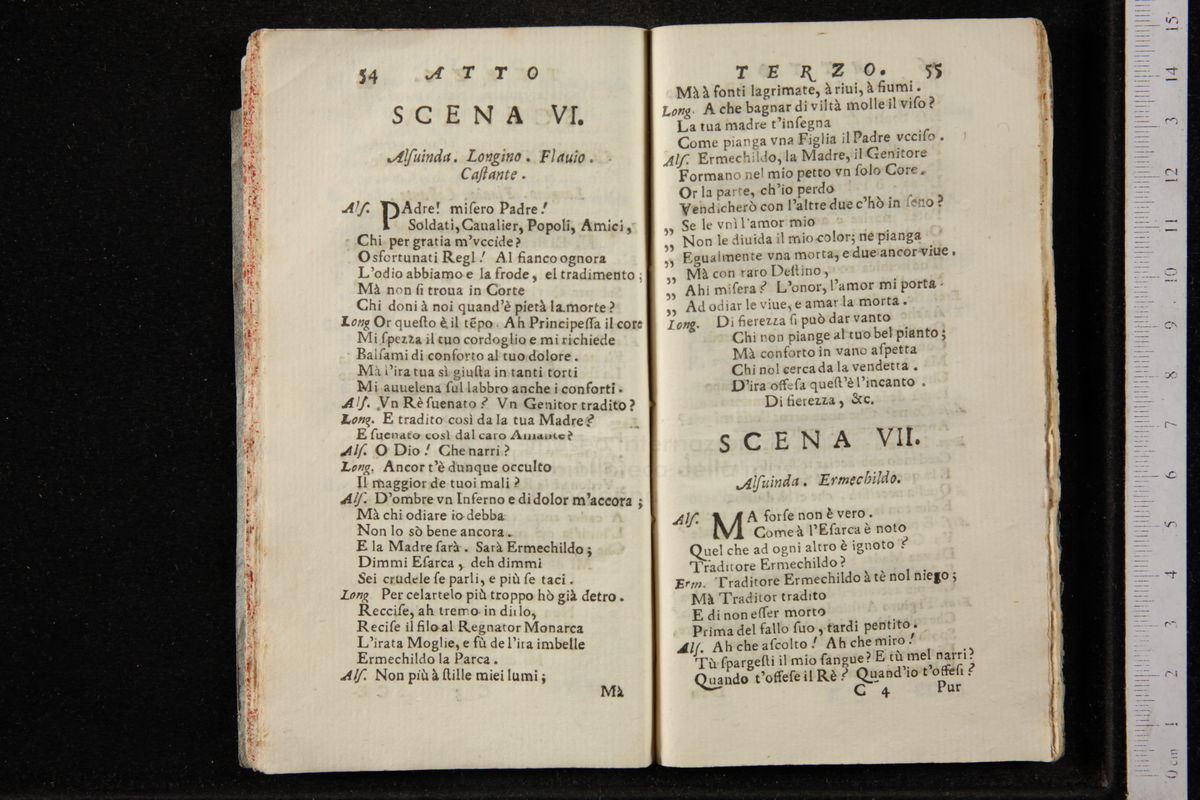 54 ATTO
SCENA VI.
Alſuinda. Longino. Flauio.
Caſtante.
Alſ. PAdre! miſero Padre!
Soldati, Caualier, Popoli, Amici,
Chi per gratia m'vccide?
O sfortunati Regl! Al fianco ognora
L'odio abbiamo e la frode, el tradimento;
Mà non ſi troua in Corte
Chi doni à noi quand'è pietà la morte?
Long Or queſto è il tẽpo. Ah Principeſſa il core
Mi ſpezza il tuo cordoglio e mi richiede
Balſami di conforto al tuo dolore.
Mà l'ira tua sì giuſta in tanti torti
Mi auuelena ſul labbro anche i conforti.
Alſ. Vn Rè ſuenato? Vn Genitor tradito?
Long. E tradito così da la tua Madre?
E ſuenato così dal caro Amante?
Alſ. O Dio! Che narri?
Long. Ancor t'è dunque occulto
Il maggior de tuoi mali?
Alſ. D'ombre vn Inferno e di dolor m'accora;
Mà chi odiare io debba
Non lo sò bene ancora.
E la Madre ſarà. Sarà Ermechildo;
Dimmi Eſarca, deh dimmi
Sei crudele ſe parli, e più ſe taci.
Long Per celartelo più troppo hò già detro.
Recciſe, ah tremo in dirlo,
Reciſe il filo al Regnator Monarca
L'irata Moglie, e fù de l'ira imbelle
Ermechildo la Parca.
Alſ. Non più à ſtille miei lumi;
Mà
TERZO. 55
Mà à fonti lagrimate, à riui, à fiumi.
Long. A che bagnar di viltà molle il viſo?
La tua madre t'inſegna
Come pianga vna Figlia il Padre vcciſo.
Alſ. Ermechildo, la Madre, il Genitore
Formano nel mio petto vn ſolo Core.
Or la parte, ch'io perdo
Vendicherò con l'altre due c'hò in ſeno?
„ Se le vnì l'amor mio
„ Non le diuida il mio color; nè pianga
„ Egualmente vna morta, e due ancor viue.
„ Mà con raro Deſtino,
„ Ahi miſera? L'onor, l'amor mi porta
„ Ad odiar le viue, e amar la morta.
Long. Di fierezza ſi può dar vanto
Chi non piange al tuo bel pianto;
Mà conforto in vano aſpetta
Chi nol cerca da la vendetta.
D'ira offeſa queſt'è l'incanto.
Di fierezza, &c.
SCENA VII.
Alſuinda. Ermechildo.
Alſ. MA forſe non è vero.
Come à l'Eſarca è noto
Quel che ad ogni altro è ignoto?
Traditore Ermechildo?
Erm. Traditore Ermechildo à tè nol niego;
Mà Traditor tradito
E di non eſſer morto
Prima del fallo ſuo, tardi pentito.
Alſ. Ah che aſcolto! Ah che miro!
Tù ſpargeſti il mio ſangue? E tù mel narri?
Quando t'offeſe il Rè? Quand'io t'offeſi?
C 4 Pur
15
14
13
12
11
10
9
8
7
6
5
4
3
2
1
0 cm